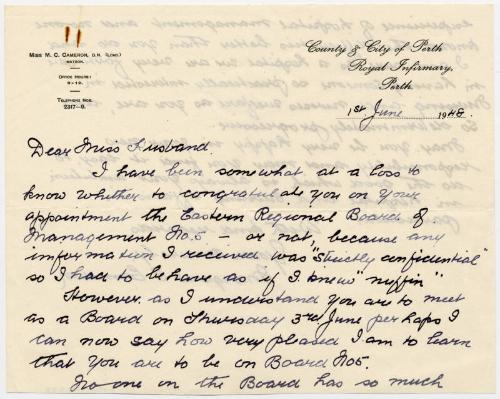 11
Miss M. C. CAMERON, D.N. (LOND.)
MATRON.
OFFICE HOURS:
9-12.
TELEPHONE NOS.
2317-8.
County & City of Perth
Royal Infirmary,
Perth
1st June 1948.
Dear Miss Husband.
I have been somewhat at a loss to
know whether to congratulate you on your
appointment the Eastern Regional Board of
Management No. 5 - or not, because any
information I received was "strictly confidential"
so I had to behave as if I knew "nuffin"
However as I understand you are to meet
as a Board on Thursday 3rd June perhaps I
can now say how very pleased I am to learn
that you are to be on Board No5.
No one on the Board has so much